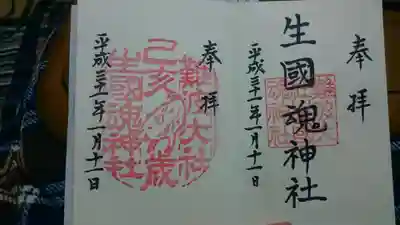 奉拝
生國魂神社
平成三十一年一月十一日
奉拝
難波大社
己亥歳
生國魂神社
平成三十一年一月十一日